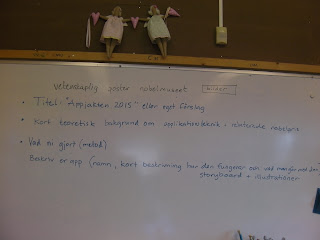 vetenskaplig poster nobelmuseet
• Titel: "Appjakten 2015" eller eget förslag
• Kort teoretisk bakgrund om applikationsteknik + relaterade nobelpris
• Vad ni gjort (metod)
Beskriv er app (namn, kort beskrivning hur den fungerar och vad man gör med den)
storyboard + illustrationer